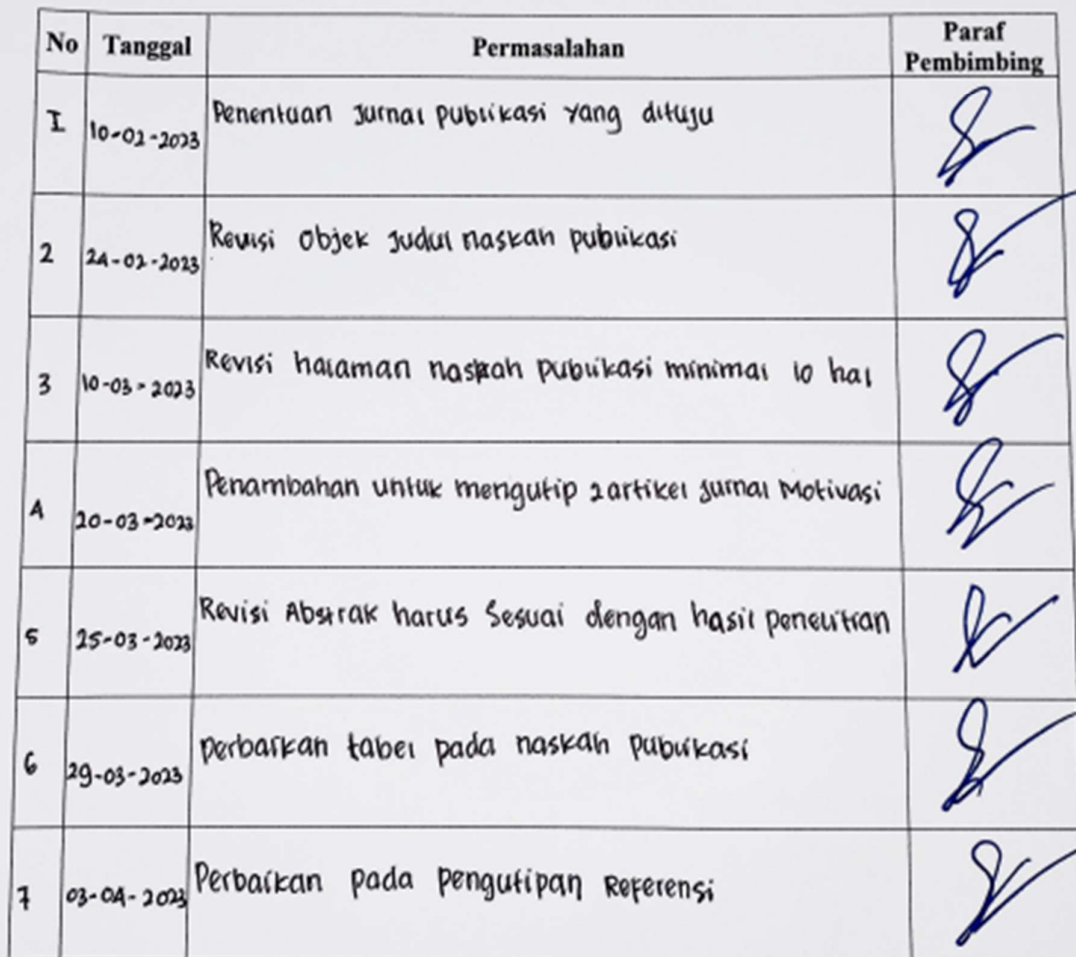 No Tanggal Permasalahan Paraf Pembimbing
1 10-02-2023 Penentuan Jurnal Publikasi yang dituju
2 24-02-2023 Revisi Objek Judul naskah publikasi
3 10-03-2023 Revisi halaman naskah publikasi minimal 10 hal
4 20-03-2023 Penambahan untuk mengutip 2 artikel jurnal Motivasi
5 25-03-2023 Revisi Abstrak harus Sesuai dengan hasil penelitian
6 29-03-2023 Perbaikan tabel pada naskah Publikasi
7 03-04-2023 Perbaikan pada Pengutipan Referensi